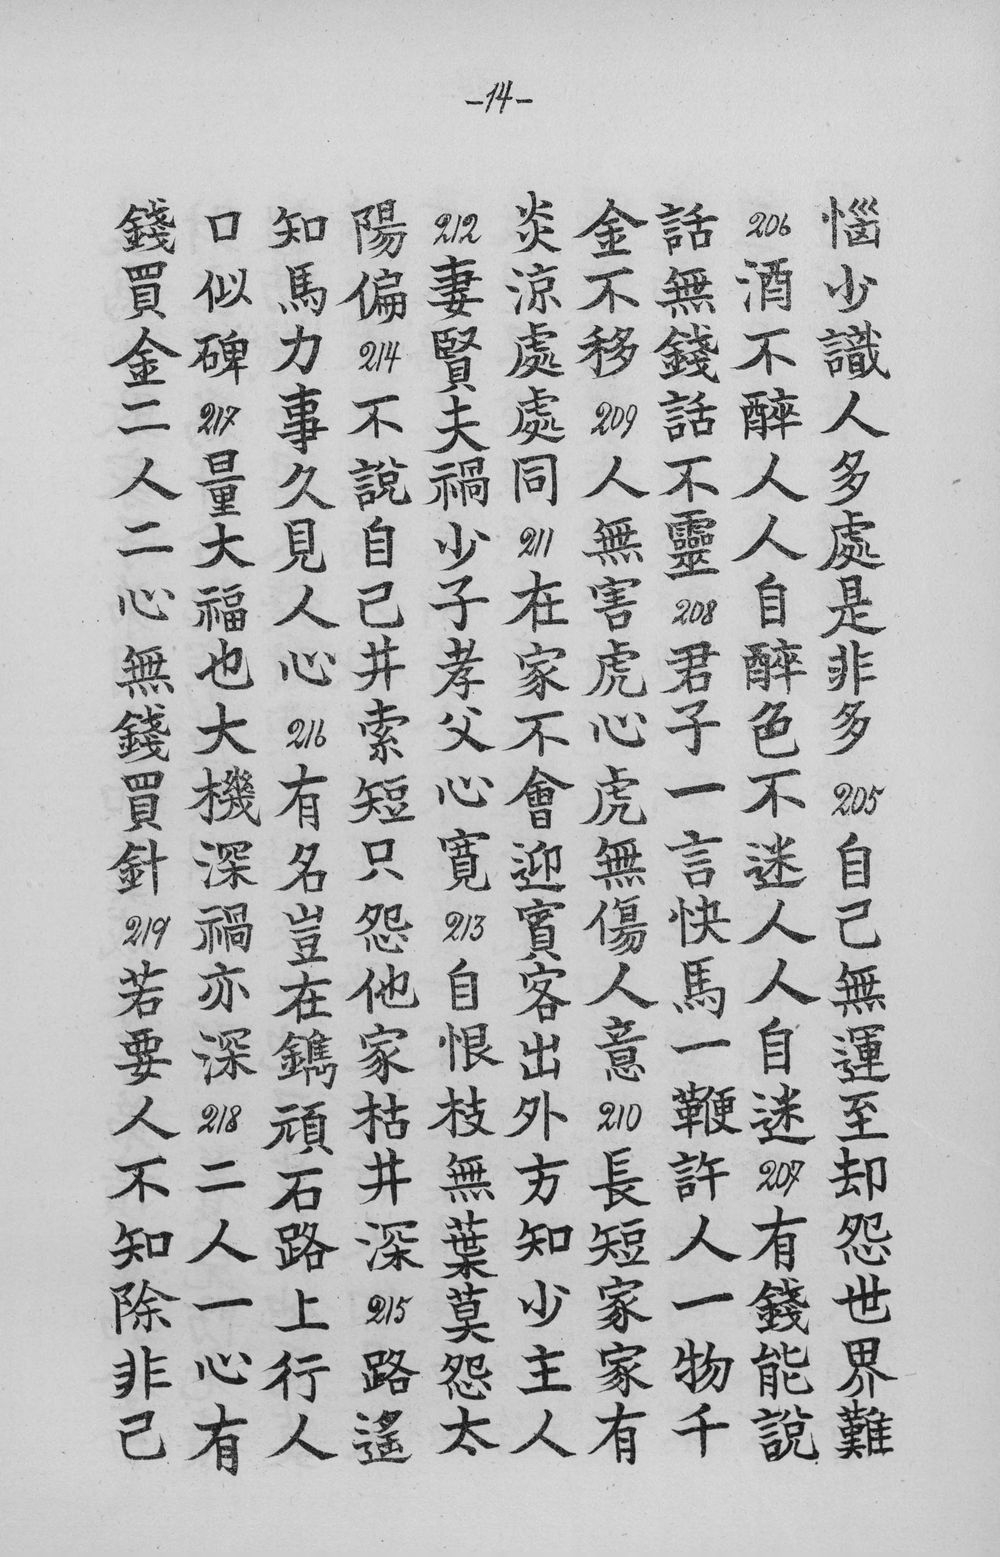 -14-
惱少識人多處是非多205自己無運至却怨世界難
206酒不醉人人自醉色不迷人人自迷207有錢能說
話無錢話不靈208君子一言快馬一鞭許人一物千
金不移209人無害虎心虎無傷人意210長短家家有
炎涼處處同211在家不會迎賓客出外方知少主人
212妻賢夫禍少子孝父心寬213自恨枝無葉莫怨太
陽偏214不說自己井索短只怨他家枯井深215路遙
知馬力事久見人心216有名豈在鐫頑石路上行人
口似碑217量大福也大機深禍亦深218二人一心有
錢買金二人二心無錢買針219若要人不知除非己